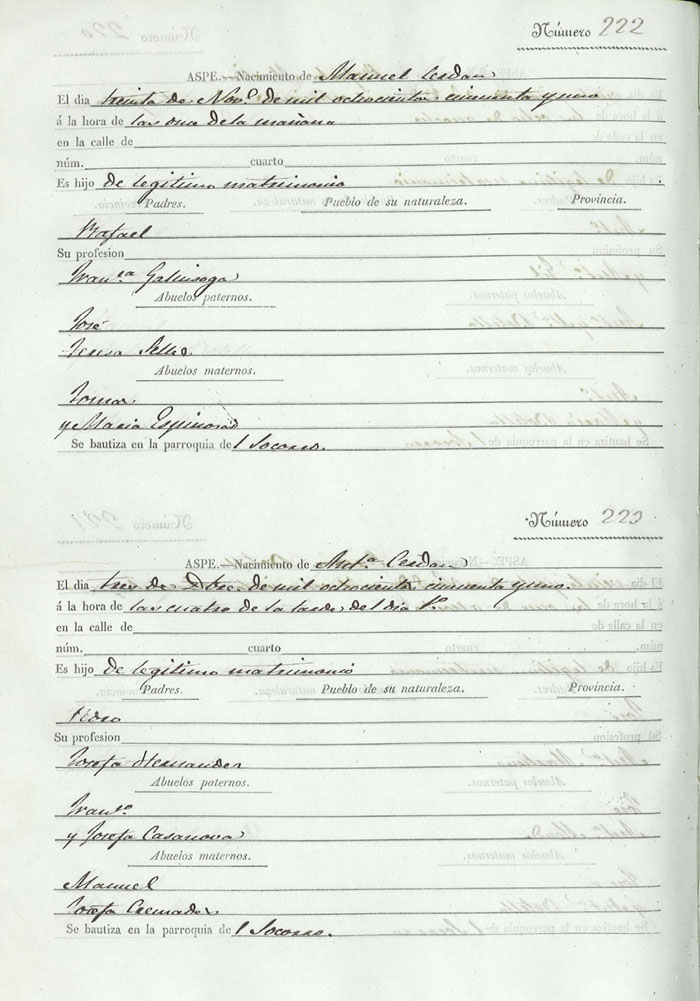 Número 222
ASPE.—Nacimiento de Manuel Cerdan
El dia treinta de Nov.e de mil ochocientos cincuenta y uno
á la hora de las once de la mañana
en la calle de
núm. cuarto
Es hijo de legitimo matrimonio
Padres. Pueblo de su naturaleza. Provincia.
Rafael
Su profesion
Fran.ca Galinsoga
Abuelos paternos.
José
Teresa
Abuelos maternos.
Tomas
y Maria Espinosa
Se bautiza en la parroquia del Socorro.
Número 223
ASPE.—Nacimiento de Ant.a Cerdan
El dia tres de Dbre. de mil ochocientos cincuenta y uno.
á la hora de las cuatro de la tarde del dia 1.º
en la calle de
núm. cuarto
Es hijo de legitimo matrimonio
Padres. Pueblo de su naturaleza. Provincia.
Pedro
Su profesion
Josefa Hernandez
Abuelos paternos.
Fran.co
y Josefa Casanova
Abuelos maternos.
Manuel
Josefa Cremades
Se bautiza en la parroquia del Socorro.